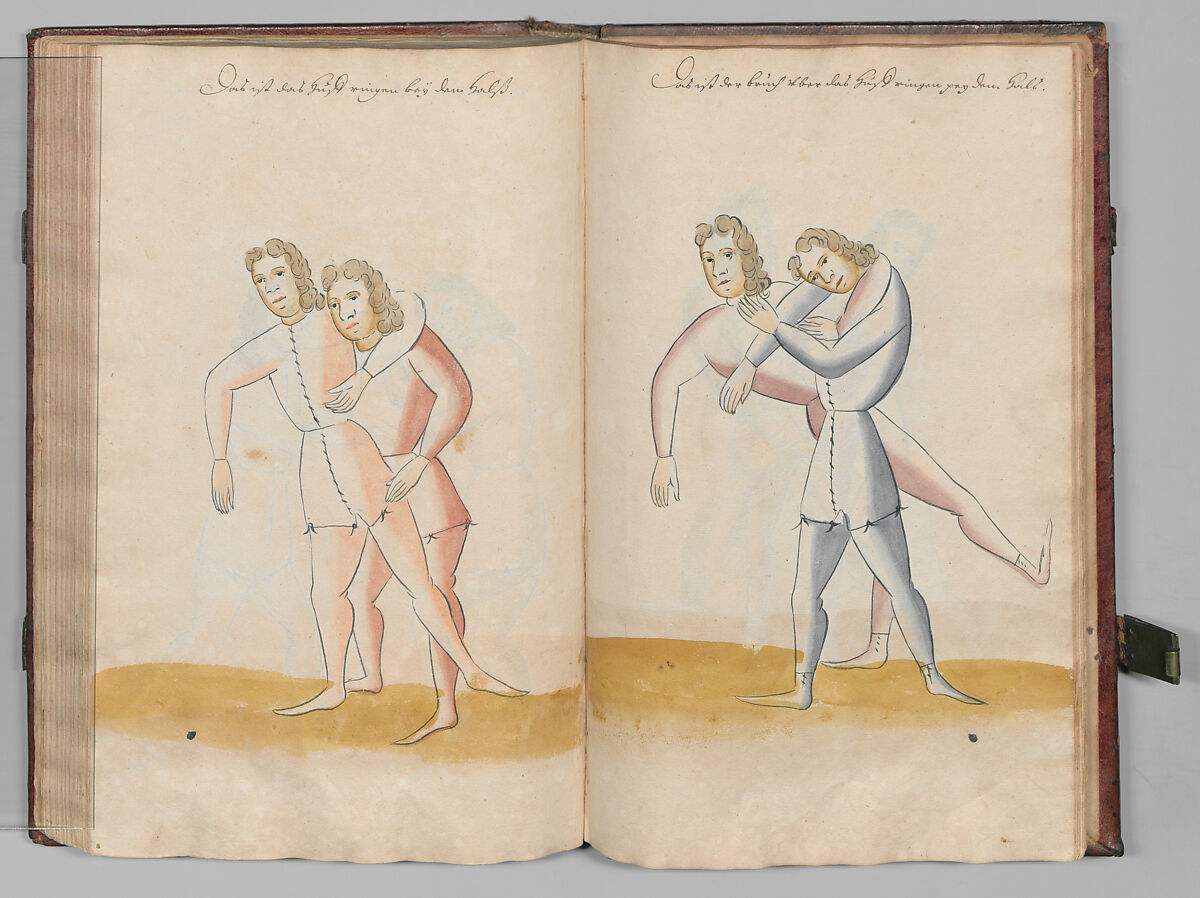 Das ist das Hufft ringen beÿ dem Halß.
Das ist der bruch vber das Hufft ringen peÿ dem Halß.